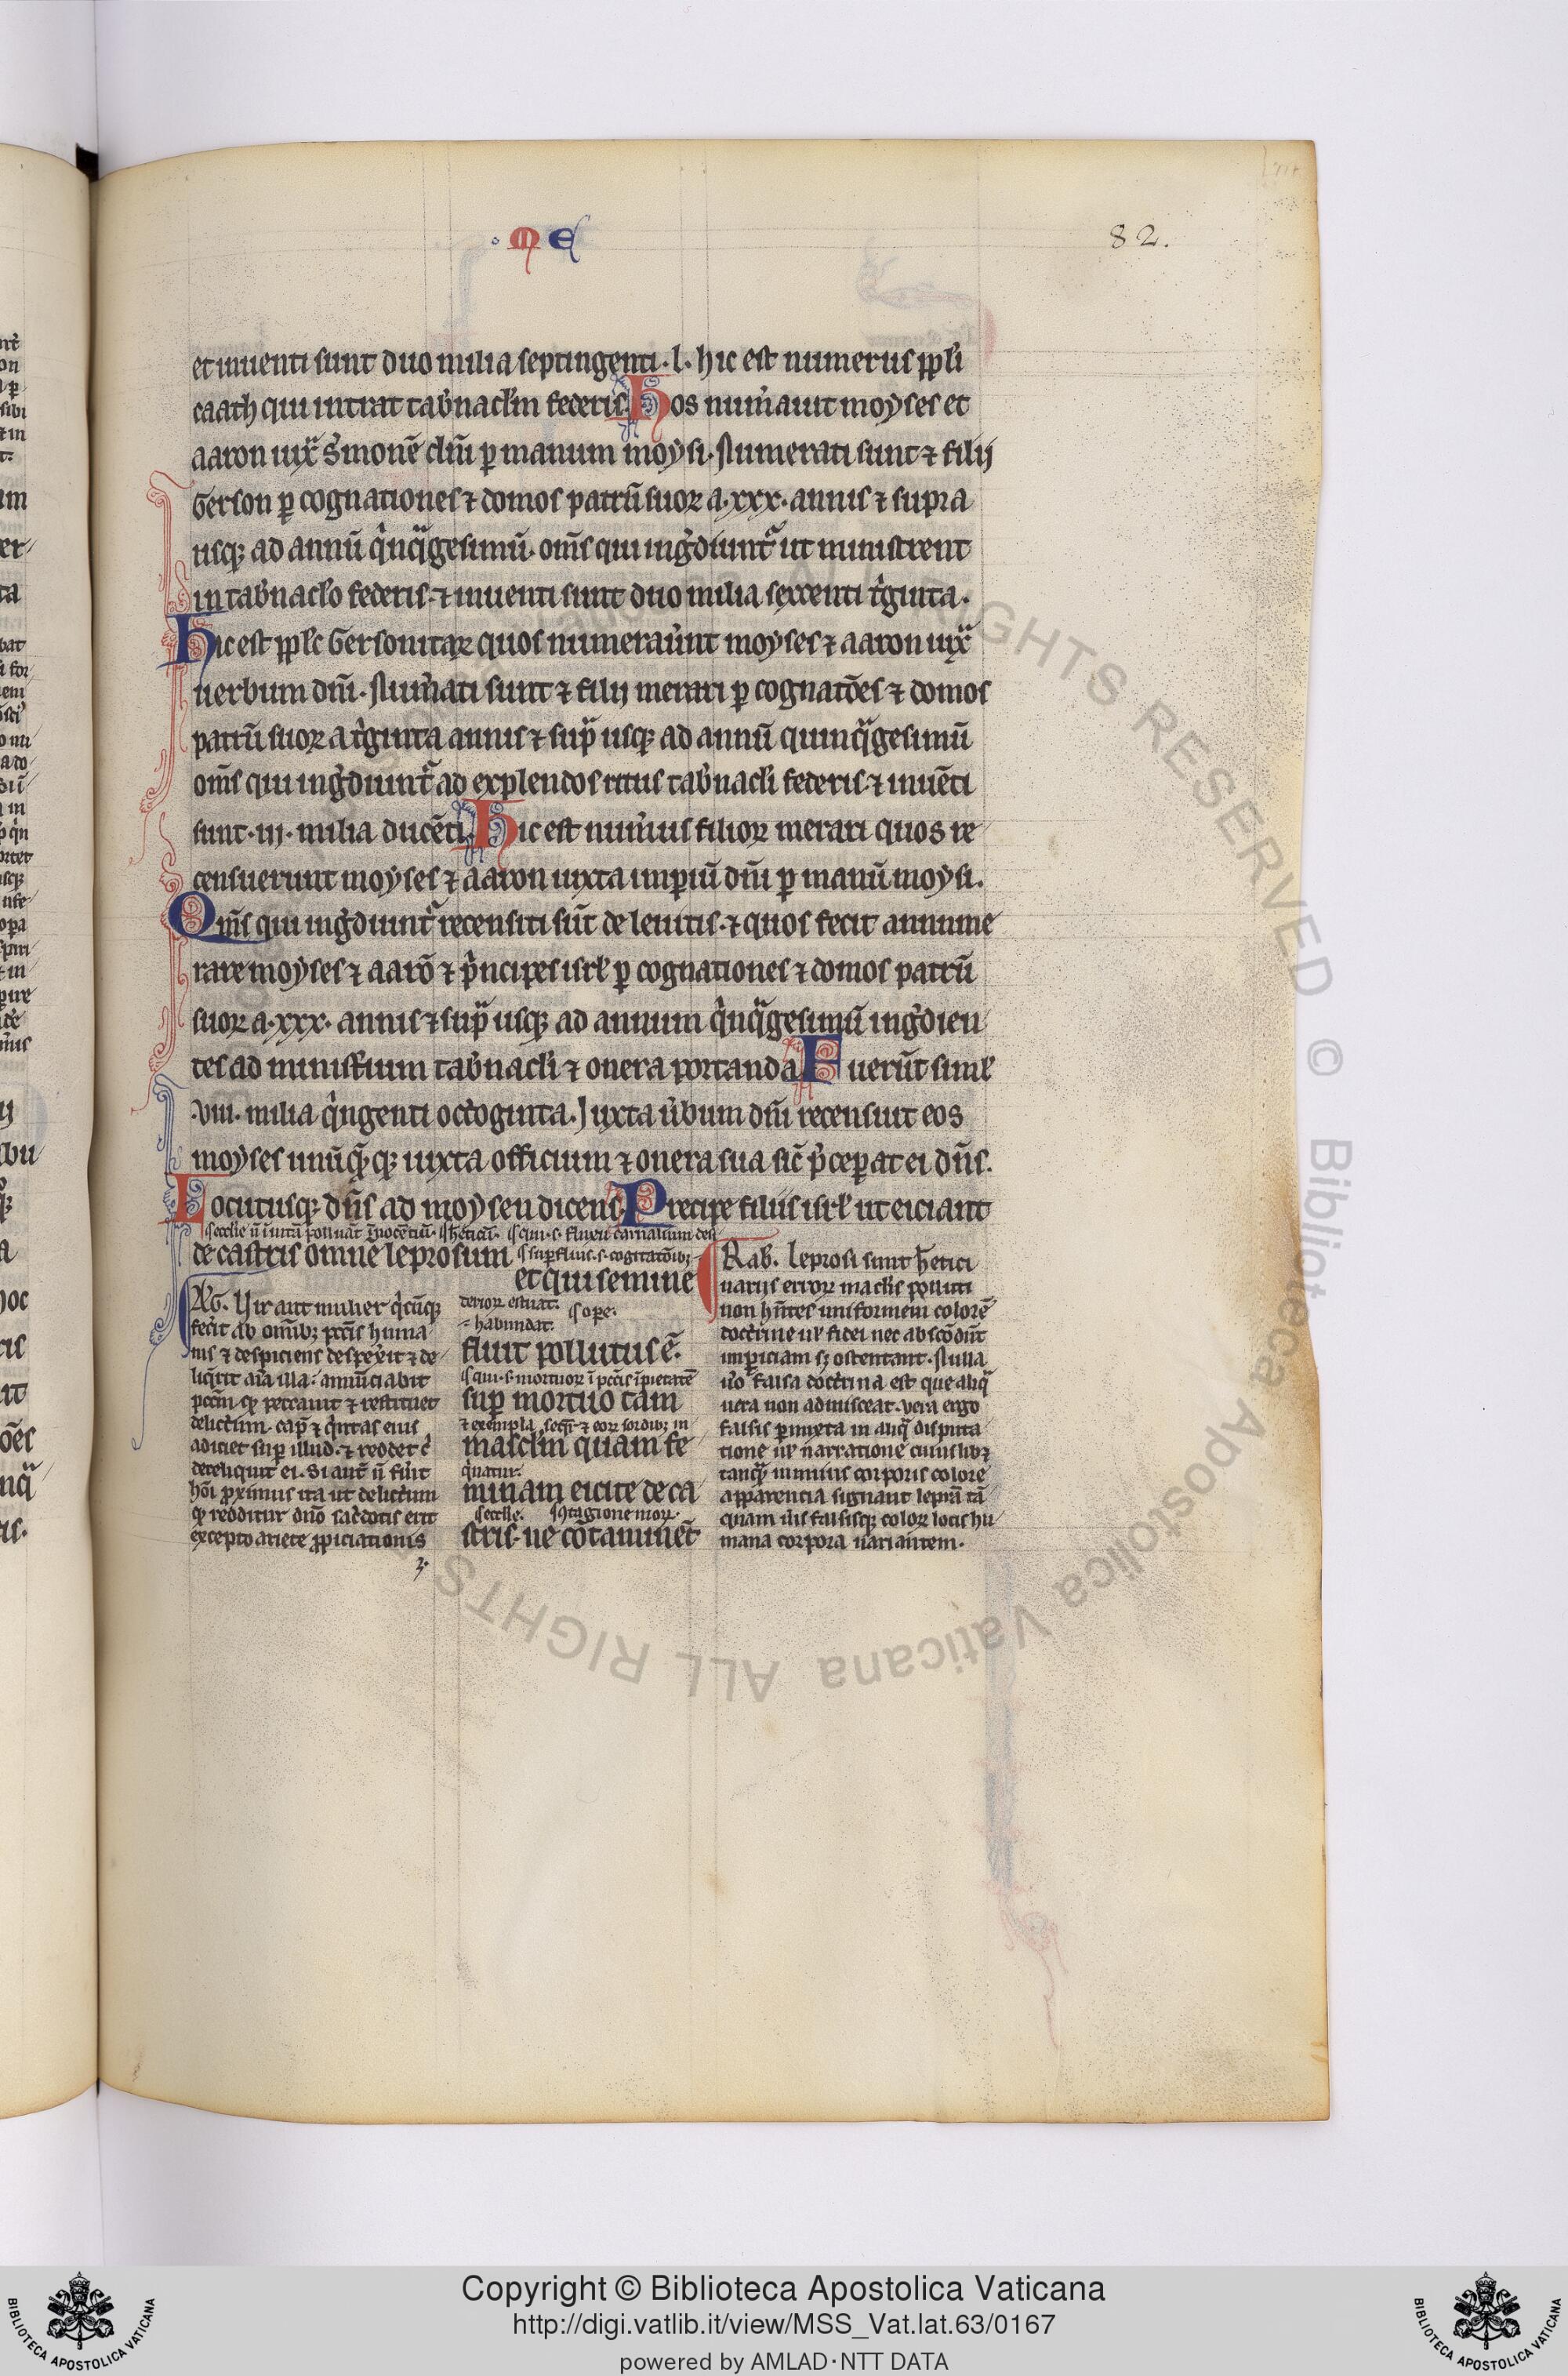 M E
82.
et inuenti sunt duo milia septingenti .l. hic est numerus ppl̓i
caath qui intrat tab̓nacl̓m federis. Hos num̓auit moyses et
aaron iuxͣ s̓monē dn̄i ꝑ manum moysi. Numerati sunt ⁊ filij
Gerson ꝑ cognationes ⁊ domos patrū suoꝝ a .xxx. annis ⁊ supra
usqꝫ ad annū q̇nqͣgesimū. om̄s qui ing̓diunt᷑ ut ministrent
in tab̓nacl̓o federis. ⁊ inuenti sunt duo milia sexcenti t̓ginta.
Hic est ppl̓s Gersonitaꝝ quos numerau̓unt moyses ⁊ aaron iuxͣ
uerbum dn̄i. Num̓ati sunt ⁊ filij merari ꝑ cognatōes ⁊ domos
patrū suoꝝ a t̓ginta annis ⁊ supͣ usqꝫ ad annū quinqͣgesimū
om̄s qui ing̓diunt᷑ ad explendos ritus tab̓nacl̓i federis. ⁊ inuēti
sunt .iii. milia ducēti. Hic est num̓us filioꝝ merari quos re
censuerunt moyses ⁊ aaron iuxta imperiū dn̄i ꝑ manū moysi.
Om̄s qui ing̓diunt᷑ recensiti sūt de leuitis. ⁊ quos fecit annume
rare moyses ⁊ aarō ⁊ p̓ncipes isrl̓ ꝑ cognationes ⁊ domos patrū
suoꝝ a .xxx. annis ⁊ supͣ usqꝫ ad annum q̇nqͣgesimū ing̓dien
tes ad minist̓ium tab̓nacl̓i ⁊ onera portanda. Fuerūt simĺ
.viii. milia q̇ngenti octoginta. Iuxta u̓bum dn̄i recensuit eos
moyses unūqͣqꝫ iuxta officium ⁊ onera sua sic̄ p̓ceperat ei dn̄s.
Locutusqꝫ dn̄s ad moysen dicens. Precipe filiis isrl̓ ut eiciant
de castris omne leprosum
et qui semine
fluit pollutus ē.
sup̄ mortuo tam
mascl̓m quam fe
minam eicite de ca
stris. ne cōtaminēt
AUG. Uir aut mulier q̇cūqꝫ
fec̓it ab om̄ibꝫ pccīs huma
nis ⁊ despiciens despex̓it ⁊ de
liq̇rit aīa illa. annūciabit
pccm̄ qꝫ peccauit ⁊ restituet
delictum. cap̄ ⁊ q̇ntas eius
adiciet sup̄ illud. ⁊ reddet c̓
dereliquit ei. Si aut̄ n̄ fu̓it
hōi proximus ita ut delictum
qꝫ redditur dn̄o sac̓dotis erit
excepto ariete ꝓpiciationis
Rab. Leprosi sunt h̓etici
uarijs erroꝝ macl̓is polluti
non hn̄tes uniformem colorē
doctrine ul̓ fidei nec abscōdūt
impericiam sꝫ ostentant. Nulla
u̓o falsa doctrina est que aliqͣ
uera non admisceat. uera ergo
falsis ꝑmixta in aliqͣ disputa
tione ul̓ narratione cuiuslibꝫ
tanqͣ in unius corporis colore
apparentia signant leprā tā
quam ueris falsisqꝫ coloꝝ locis hu
mana corpora uariantem.
Copyright © Biblioteca Apostolica Vaticana
http://digi.vatlib.it/view/MSS_Vat.lat.63/0167
powered by AMLAD·NTT DATA
BIBLIOTECA APOSTOLICA VATICANA
BIBLIOTECA APOSTOLICA VATICANA